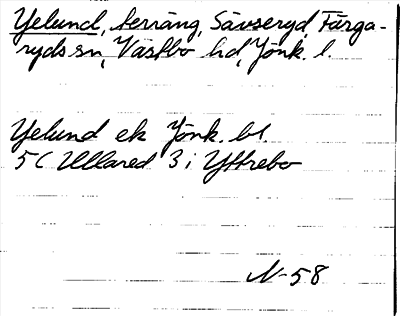 Yelund, terräng, Sävseryd, Färga-
ryds sn, Västbo hd, Jönk. l.
Yelund ek Jönk. bl.
5C Ullared 3 i Yttrebo
N-58